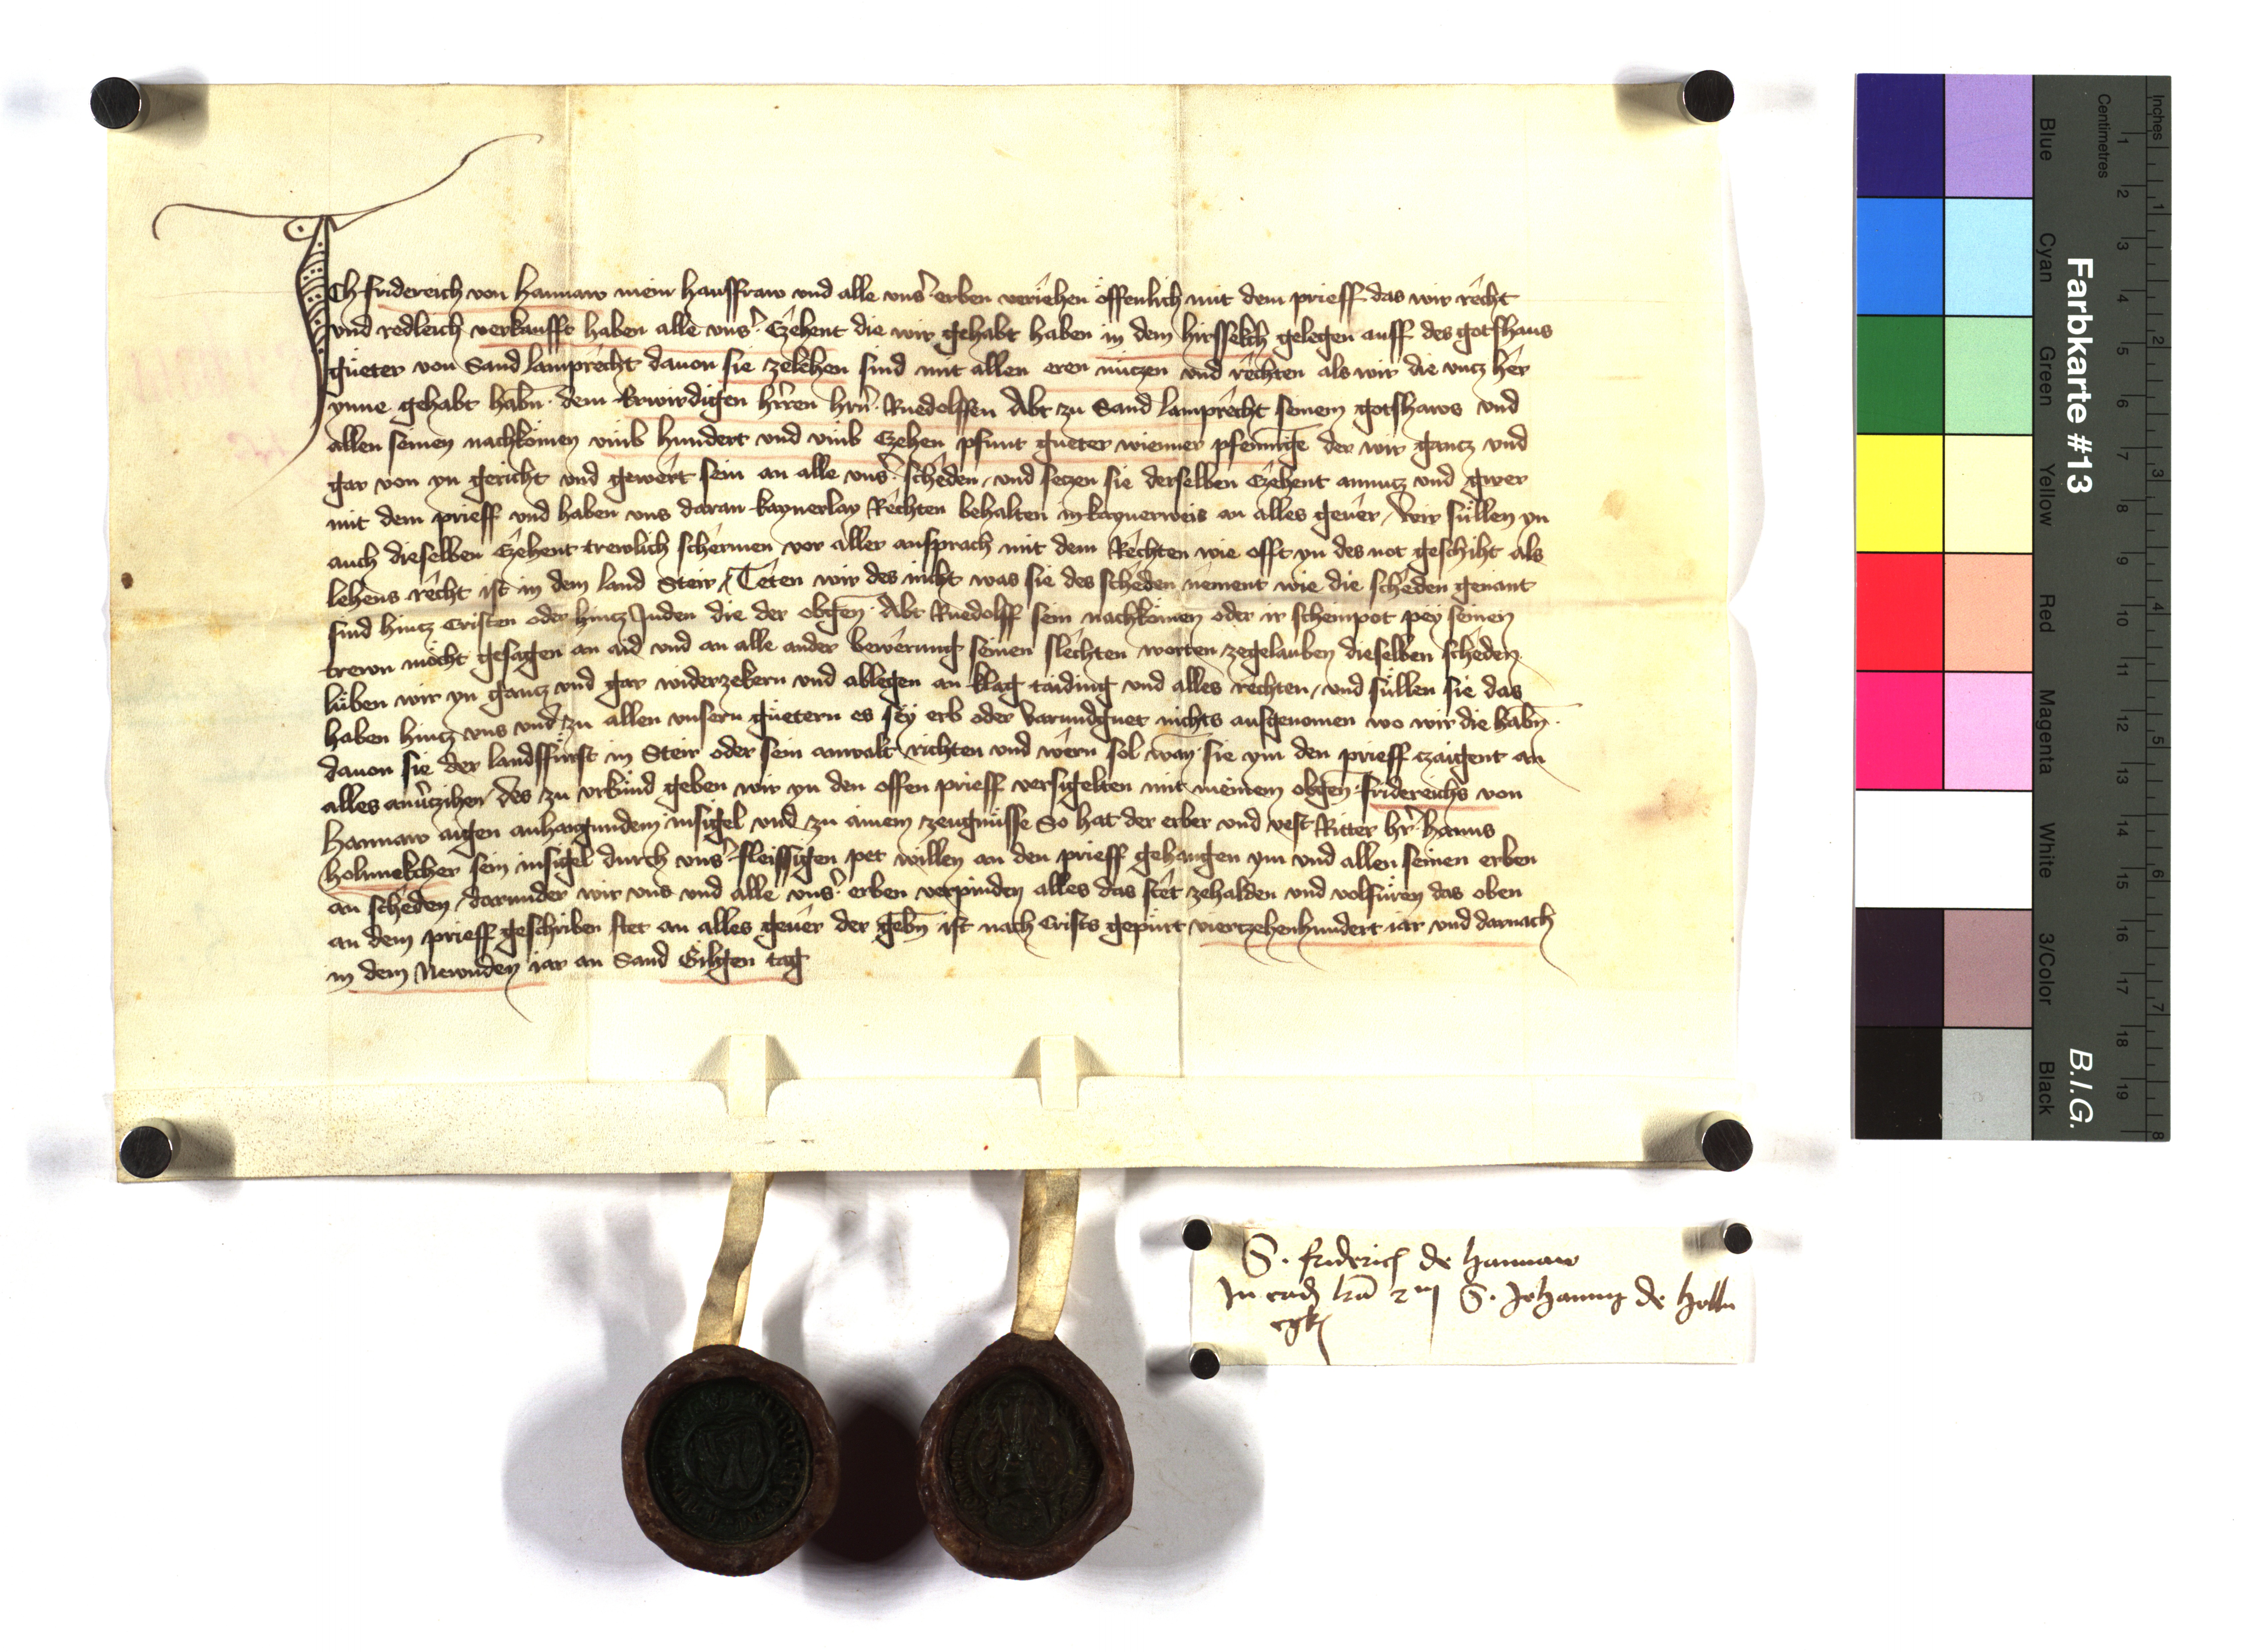 Ich fridereich von hannaw mein hausfraw vnd alle vns̾ erben veriehen offenlich mit dem prieff das wir recht
vnd redleich verkaufft haben alle vns̾ Czehent die wir gehabt haben in dem hirssekch gelegen auff des gotshaus
güeter von Sand lamprecht dauon sie zelehen sind mit allen eren nuczen vnd rechten als wir die vncz her
ynne gehabt habn̄ dem Erwirdigen hr̄ren hrn̄ Ruedolffen Abt zu Sand lamprecht seinem gotshaws vnd
allen seinen nachkomen vmb hundert vnd vmb Czehen pfunt gueter wienner pfennige der wir gancz vnd
gar von yn gericht vnd gewert sein an alle vns̾ scheden / vnd seczen sie derselben Czehent annucz vnd gwer
mit dem prieff vnd haben vns daran kaynerlay Rechten behalten in kaynerweis an alles geuer / Wir süllen yn
auch dieselben Czehent trewlich schermen vor aller ansprach mit dem Rechten wie offt yn des not geschiht als
lehens recht ist in dem land Steir / Teten wir des nicht was sie des scheden nement wie die scheden genant
sind hincz Cristen oder hincz Juden die der obgen̄ Abt Ruedolff sein nachkomen oder ir scheinpot pey seinen
trewn möcht gesagen an aid vnd an alle ander bewerung seinen slechten worten zegelauben dieselben scheden
lüben wir yn gancz vnd gar widerzekern vnd ablegen an klag taiding vnd alles rechten / vnd süllen sie das
haben hincz vns vnd zu allen vnsern güetern es sey erb oder varundguet nichts ausgenomen wo wir die habn̄
dauon sie der landsfürst in Steir oder sein anwalt richten vnd wern sol wan̄ sie ym den prieff czaigent an
alles anuerzihen / des zu vrkund geben wir yn den offen prieff versigelten mit meinem obgen̄ fridereichs von
hannaw aigen anhangundem insigel vnd zu ainem zeugnüsse So hat der erber vnd vest Ritter hr̄ hanns
holnnekcher sein insigel durch vns̾ fleissigen pet willen an den prieff gehangen ym vnd allen seinen erben
an scheden / darunder wir vns vnd alle vns̾ erben verpinden alles das stet zehalden vnd volfuren das oben
an dem prieff geschriben stet an alles geuer der gebn̄ ist nach Crists gepürt vierczehenhundert iar vnd darnach
in dem Newnden iar an Sand Gilgen tag
S. friderici de hannaw
In eadē S. Johannis de Holln
egk
Farbkarte #13
B.I.G.
Inches
Centimetres
1 2 3 4 5 6 7 8 9 10 11 12 13 14 15 16 17 18 19
1 2 3 4 5 6 7 8
Blue
Cyan
Green
Yellow
Red
Magenta
White
3/Color
Black